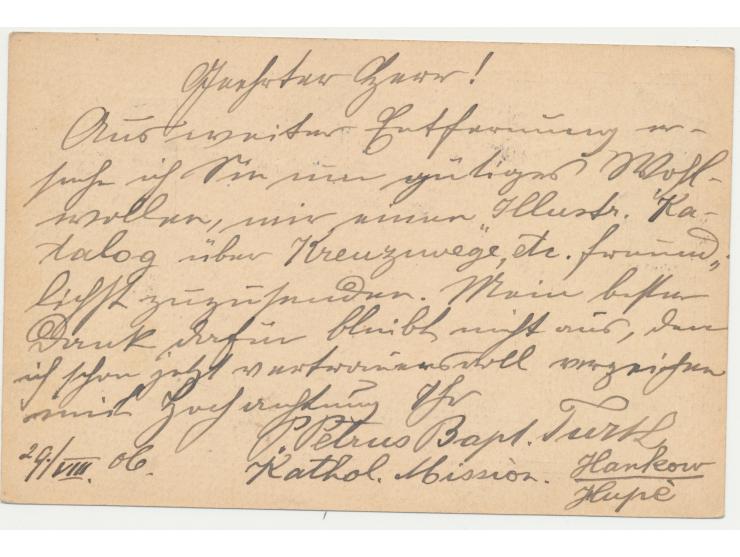 Geehrter Herr!
Aus weiter Entfernung er-
suche ich Sie um gütiges Wohl-
wollen, mir einen "Illustr. Ka-
talog über Kreuzwege", etc. freund-
lichst zuzusenden. Mein bester
Dank dafür bleibt nicht aus, den
ich schon jetzt vertrauensvoll verzeichne
mit Hochachtung Ihr
P. Petrus Bapt. Turk
29./VIII. 06. Kathol. Mission. Hankow
Hupé